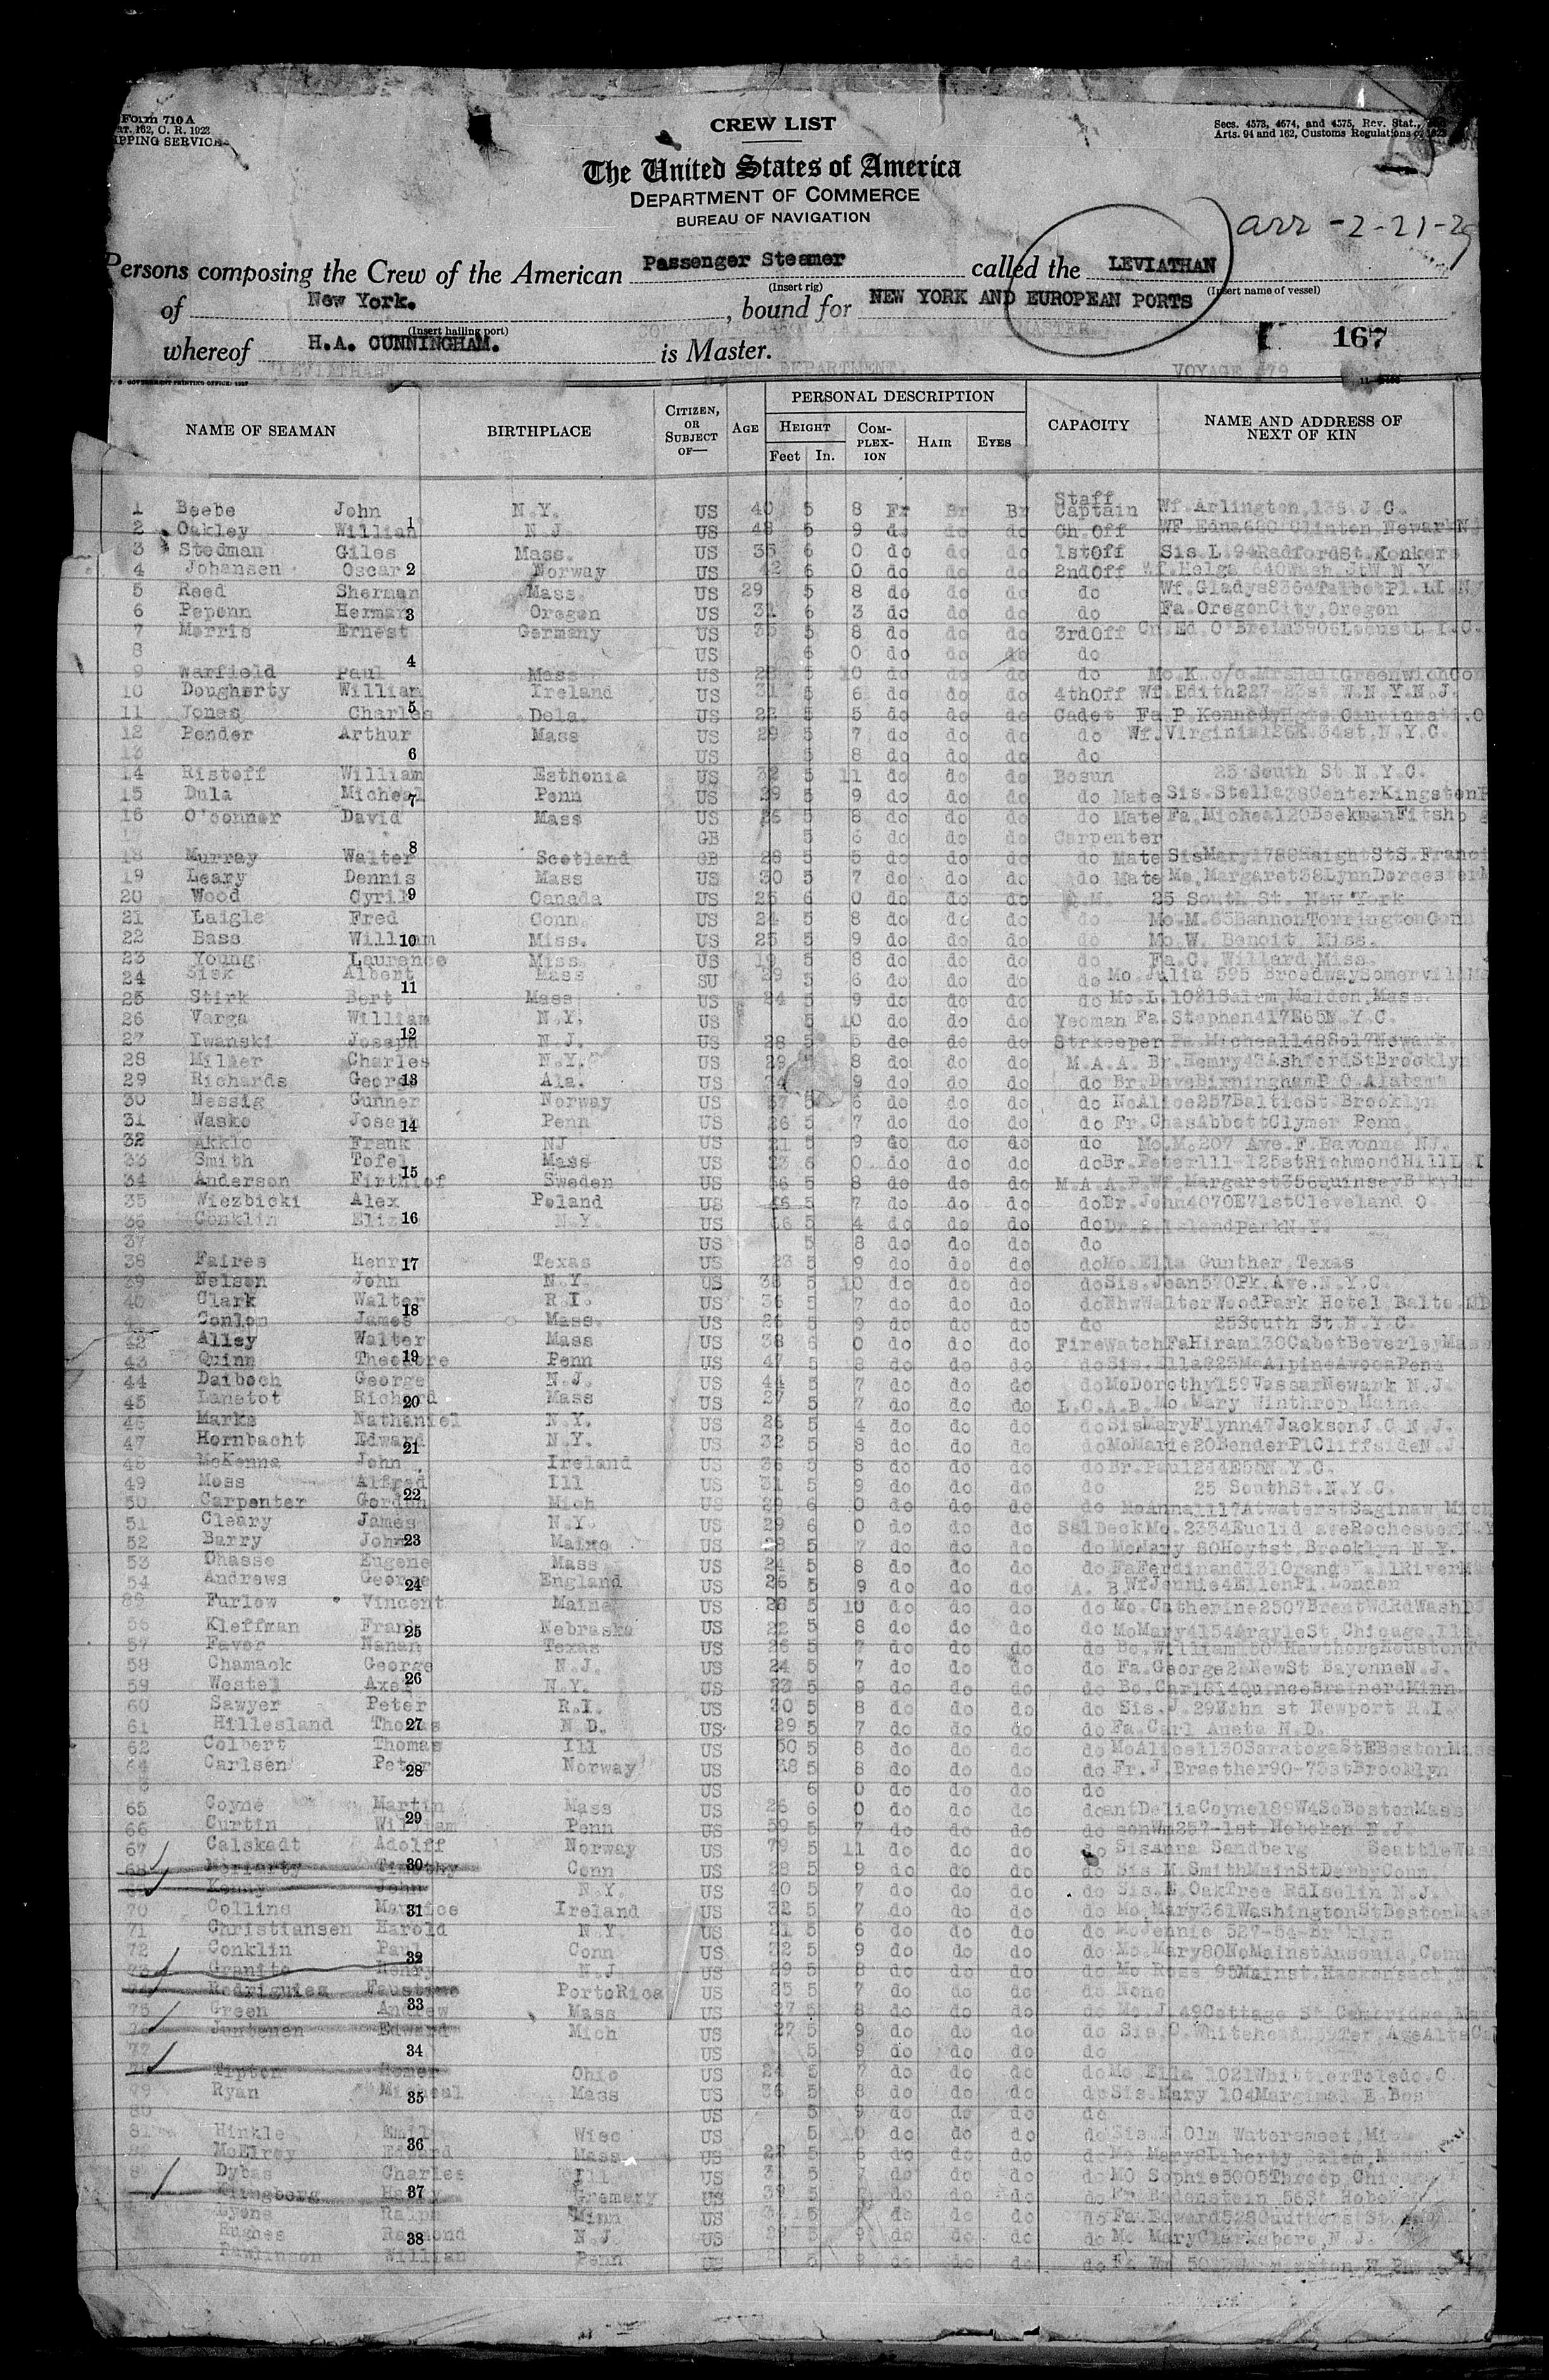 Form 710 A
162, C. R. 1923
SHIPPING SERVICE
CREW LIST
Secs. 4573, 4574, and 4575, Rev. Stat.,
Arts. 94 and 162, Customs Regulations of 1923
The United States of America
DEPARTMENT OF COMMERCE
BUREAU OF NAVIGATION
arr - 2-21-29
Persons composing the Crew of the American Passenger Steamer called the LEVIATHAN
(Insert rig) (Insert name of vessel)
of New York. , bound for NEW YORK AND EUROPEAN PORTS
(Insert hailing port)
whereof H.A. CUNNINGHAM. is Master. 167
"LEVIATHAN" DECK DEPARTMENT. VOYAGE #79
NAME OF SEAMAN BIRTHPLACE CITIZEN, OR SUBJECT OF— AGE PERSONAL DESCRIPTION HEIGHT Feet In. COMPLEXION HAIR EYES CAPACITY NAME AND ADDRESS OF NEXT OF KIN
1 Beebe John N.Y. US 40 5 8 Fr Br Br Staff Captain Wf. Arlington,138 J.C.
2 Oakley William N J US 48 5 9 do do do Ch Off WF.Edna680 Clinton NewarkNJ
3 Stedman Giles Mass. US 35 6 0 do do do 1stOff Sis.L.94RadfordSt.Yonkers
4 Johansen Oscar Norway US 42 6 0 do do do 2ndOff Wf.Helga 640Wash
5 Reed Sherman Mass. US 29 5 8 do do do do Wf.Gladys8364TalbotPl.LI.NY
6 Pepenn Herman Oregon US 31 6 3 do do do do Fa.OregonCity,Oregon
7 Morris Ernest Germany US 35 5 8 do do do 3rdOff
8 US 6 0 do do do do
9 Warfield Paul Mass US 28 5 10 do do do do Mo.K. c/o MrsHallGreenwichCon
10 Dougherty William Ireland US 31 5 6 do do do 4thOff Wf.Edith227-23st W.N.Y.N.J.
11 Jones Charles Dela. US 22 5 5 do do do Cadet Fa.P.Kennedy Cincinnati.O
12 Pender Arthur Mass US 29 5 7 do do do do Wf.Virginia126E.34st.N.Y.C.
13 US 5 8 do do do do
14 Ristoff William Esthonia US 32 5 11 do do do Bosun 25 South St N.Y.C.
15 Dula Micheal Penn US 29 5 9 do do do do Mate Sis.Stella38CenterKingstonP
16 O'conner David Mass US 26 5 8 do do do do Mate Fa.Micheal20Beekman
17 GB 5 6 do do do Carpenter
18 Murray Walter Scotland GB 28 5 5 do do do do Mate SisMary1789HaightStS.Franci
19 Leary Dennis Mass US 30 5 7 do do do do Mate Mo.Margaret38LynnDorcesterM
20 Wood Cyril Canada US 26 6 0 do do do Q.M. 25 South St. New York
21 Laigle Fred Conn US 24 5 8 do do do do Mo.M.63BannonTorringtonConn
22 Bass William Miss. US 25 5 9 do do do do Mo W. Benoit Miss.
23 Young Laurence Miss. US 19 5 8 do do do do Fa.C. Willard,Miss.
24 Sisk Albert Mass SU 29 5 6 do do do do Mo.Julia 595 BroadwaySomerville
25 Stirk Bert Mass US 24 5 9 do do do do Mo.L.1021Salem,Malden,Mass.
26 Varga William N.Y. US 5 10 do do do Yeoman Fa.Stephen417E65N.Y.C.
27 Iwanski Joseph N.J. US 28 5 5 do do do Strkeeper Fa.Micheal148So17Newark.
28 Miller Charles N.Y. US 29 5 8 do do do M.A.A. Br.Henry43AshfordStBrooklyn
29 Richards George Ala. US 34 9 do do do do Br.DaveBirminghamP.O.Alabama
30 Nessig Gunner Norway US 37 5 6 do do do do NcAlice257BalticSt.Brooklyn
31 Wasko Joseph Penn US 26 5 7 do do do do Fr.ChasAbbottClymer Penn.
32 Akkio Frank NJ US 21 5 9 do do do do Mo.M.207 Ave.F.Bayonne NJ.
33 Smith Tofel Mass US 23 6 0 do do do do Br.Peter111-125stRichmondHillL.I
34 Anderson Firthiof Sweden US 56 5 8 do do do M.A.A.P.Wf.Margaret356quinseyB'kyln
35 Wiezbicki Alex Poland US 46 5 7 do do do do Br.John4070E71stCleveland O.
36 Conklin N.Y. US 36 5 4 do do do do IslandParkN.Y.
37 US 5 8 do do do do
38 Faires Henry Texas US 23 5 9 do do do do Mo.Ella Gunther,Texas
39 Nelson John N.Y. US 38 5 10 do do do do Sis.Jean570Pk.Ave.N.Y.C.
40 Clark Walter R.I. US 36 5 7 do do do do NhwWalterWoodPark Hotel Balto.MD
41 Conlon James Mass. US 26 5 9 do do do do 25South St.N.Y.C.
42 Alley Walter Mass US 38 6 0 do do do FireWatch FaHiram130CabotBeverleyMass
43 Quinn Theodore Penn US 47 5 8 do do do do Sis.Ella823McAlpineAvocaPenn
44 Daiboch George N.J. US 44 5 7 do do do do MoDorothy159VassarNewark N.J.
45 Lanctot Richard Mass US 27 5 7 do do do L.O.A.B. Mo.Mary Winthrop,Maine.
46 Marks Nathaniel N.Y. US 26 5 4 do do do do SisMaryFlynn47JacksonJ.C N.J.
47 Hornbacht Edward N.Y. US 32 5 8 do do do do MoMarie20BenderPlCliffsideN.J
48 McKenna John Ireland US 36 5 8 do do do do Br.Paul244E55N.Y.C.
49 Moss Alfred Ill US 31 5 9 do do do do 25 SouthSt.N.Y.C.
50 Carpenter Gordon Mich US 29 6 0 do do do do MoAnna1117AtwaterstSaginaw Mich
51 Cleary James N.Y. US 29 6 0 do do do SalDeck Mo.2354Euclid aveRochesterN.Y
52 Barry John Maine US 28 5 7 do do do do MoMary 80Hoytst,Brooklyn N.Y.
53 Dhasse Eugene Mass US 24 5 8 do do do do FaFerdinand131Orange
54 Andrews George England US 26 5 9 do do do A. B. WfJennie4EllenPl.London
Furlow Vincent Maine US 28 5 10 do do do do Mo.Catherine2507BrentWdRdWash
56 Kleffman Frank Nebraska US 22 5 8 do do do do MoMary4154ArgyleSt.Chicago,Ill.
57 Favor Nanan Texas US 26 5 7 do do do do
58 Chamack George N.J. US 24 5 7 do do do do Fa.George2 NewSt BayonneN.J.
59 Westel Axel N.Y. US 23 5 9 do do do do Bo.Carl814QuinceBrainerdMinn.
60 Sawyer Peter R.I. US 30 5 8 do do do do Sis.J.29John st Newport R.I.
61 Hillesland Thomas N.D. US 29 5 7 do do do do Fa.Carl Aneta N.D.
62 Colbert Thomas Ill US 50 5 8 do do do do MoAlice1130SaratogaStEBostonMass
64 Carlsen Peter Norway US 38 5 8 do do do do Fr.J.Braether90-73stBrooklyn
US 6 0 do do do do
65 Coyne Martin Mass US 26 6 0 do do do do antDeliaCoyne189W4SoBostonMass
66 Curtin William Penn US 59 5 7 do do do do sonWm257-1st Hoboken N.J.
67 Calskadt Adolff Norway US 79 5 11 do do do do Sisanna Sandberg SeattleWash
68 Moriarty Timothy Conn US 28 5 9 do do do do Sis M.SmithMainStDerbyConn.
Kenny John N.Y. US 40 5 7 do do do do Sis.E.OakTree RdIselin N.J.
70 Collins Maurice Ireland US 32 5 7 do do do do Mo.Mary361WashingtonStBostonMass
71 Christiansen Harold N.Y. US 21 5 6 do do do do MoJennie 527-54-Br'klyn
72 Conklin Paul Conn US 22 5 9 do do do do Mo.Mary80NoMainstAnsonia,Conn
73 Granito Henry N.J US 29 5 8 do do do do Mo Rose 95Mainst.Hackensack,
74 Rodriguiez PortoRica US 25 5 7 do do do do None
75 Green Andrew Mass US 27 5 8 do do do do Mo.J.49Cottage St Cambridge,Mas
76 Juntenen Edward Mich US 27 5 9 do do do do
77 US 5 9 do do do do
Tipton Homer Ohio US 24 5 7 do do do do Mo Ella 1021WhittierToledo.O
79 Ryan Micheal Mass US 36 5 8 do do do do Sis.Mary 104Marginal E Bos
80 US 5 9 do do do do
81 Hinkle Emil Wisc US 5 10 do do do do Olm Watersmeet,Mi
McElroy Edward Mass. US 22 5 6 do do do do Mary8Liberty Salem,Mass
Dybas Charles Ill US 5 7 do do do do MO Sophie5005Throop,Chicago
Klingberg Harry Gremary US 39 5 7 do do do do Bodenstein 56St Hoboken
Lyons Ralph Minn US 5 7 do do do do
Hughes Raymond N.J US 5 9 do do do do Mo MaryClarksboro,N.J.
Rawlinson William Penn US 5 8 do do do do
1
2
3
4
5
6
7
8
9
10
11
12
13
14
15
16
17
18
19
20
21
22
23
24
25
26
27
28
29
30
31
32
33
34
35
36
37
38